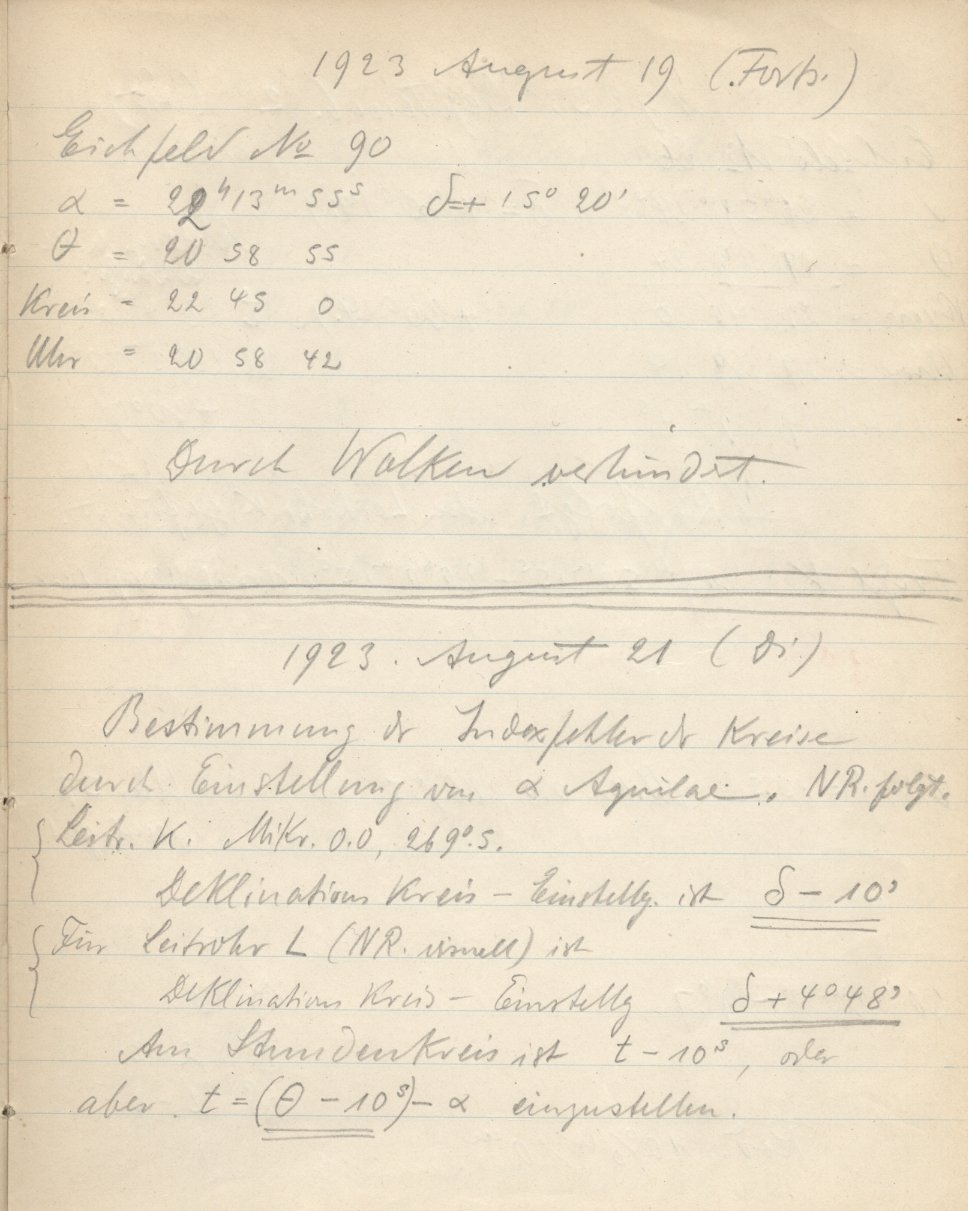 1923 August 19 (Forts.)
Eichfeld No 90
α = 22h 13m 55s δ=+ 15° 20'
θ = 20 58 55
Kreis = 22 45 0
Uhr = 20 58 42
Durch Wolken verhindert.
1923. August 21 (Di)
Bestimmung dr Indexfehler dr Kreise
durch Einstellung von α Aquilae. NR. folgt.
Leitr. K. Mikr. 0.0, 269°.5.
Deklinations Kreis – Einstellg. ist δ – 10'
Für Leitrohr L (NR. visuell) ist
Deklinations Kreis – Einstellg δ + 4° 48'
Am Stundenkreis ist t – 10s, oder
aber t = (θ – 10s) – α einzustellen.